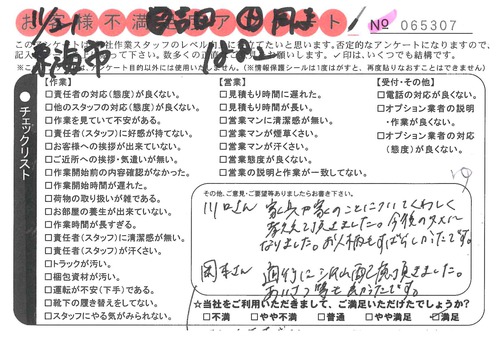 11/21
お客様不満 アンケート
№ 065307
東海市
このアンケートは
社作業スタッフのレベル
に
てたいと思います。否定的なアンケートになりますので、
記入
お願いします。✓印は、いくつでも結構です。
アンケート目的以外には使用いたしません。(※情報保護シールは1度はがすと、再度貼りなおすことはできません)
チェックリスト
【作業】
□責任者の対応(態度)が良くない。
□他のスタッフの対応(態度)が良くない。
□作業を見ていて不安がある。
□責任者(スタッフ)に好感が持てない。
□お客様への挨拶が出来ていない。
□ご近所への挨拶・気遣いが無い。
□作業開始前の内容確認がなかった。
□作業開始時間が遅れた。
□荷物の取り扱いが雑である。
□お部屋の養生が出来ていない。
□作業時間が長すぎる。
□責任者(スタッフ)に清潔感が無い。
□責任者(スタッフ)が汗くさい。
□トラックが汚い。
□梱包資材が汚い。
□運転が不安(下手)である。
□靴下の履き替えをしてない。
□スタッフにやる気がみられない。
【営業】
□見積もり時間に遅れた。
□見積もり時間が長い。
□営業マンに清潔感が無い。
□営業マンが煙草くさい。
□営業マンが汗くさい。
□営業態度が良くない。
□営業の説明と作業が一致してない。
【受付・その他】
□電話の対応が良くない。
□オプション業者の説明
・作業が良くない。
□オプション業者の対応
(態度)が良くない。
その他、ご意見・ご要望等ありましたらお書き下さい。
川口さん 家具や家のことについてくわしく
教えて頂きました。今後のタメに
なりました。お人柄もすばらしかったです。
岡本さん 適切に
頂きました。
☆当社をご利用いただきまして、ご満足いただけたでしょうか?
□不満 □やや不満 □普通 □やや満足 ☑満足